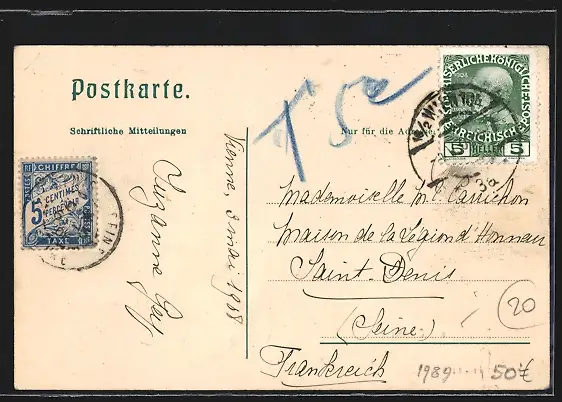 Postkarte.
Schriftliche Mitteilungen
Nur für die Adresse
T 5c
KAISERLICHEKÖNIGLICHEÖSTER
REICHISCHE
5 HELLER 5
WIEN
CHIFFRE
5
CENTIMES
À
PERCEVOIR
TAXE
SEINE
Vienne, 3 mai 1908
Suzanne Gey
Mademoiselle M. Cauchon
Maison de la Légion d'Honneur
Saint-Denis
(Seine)
Frankreich
20
1989
50€